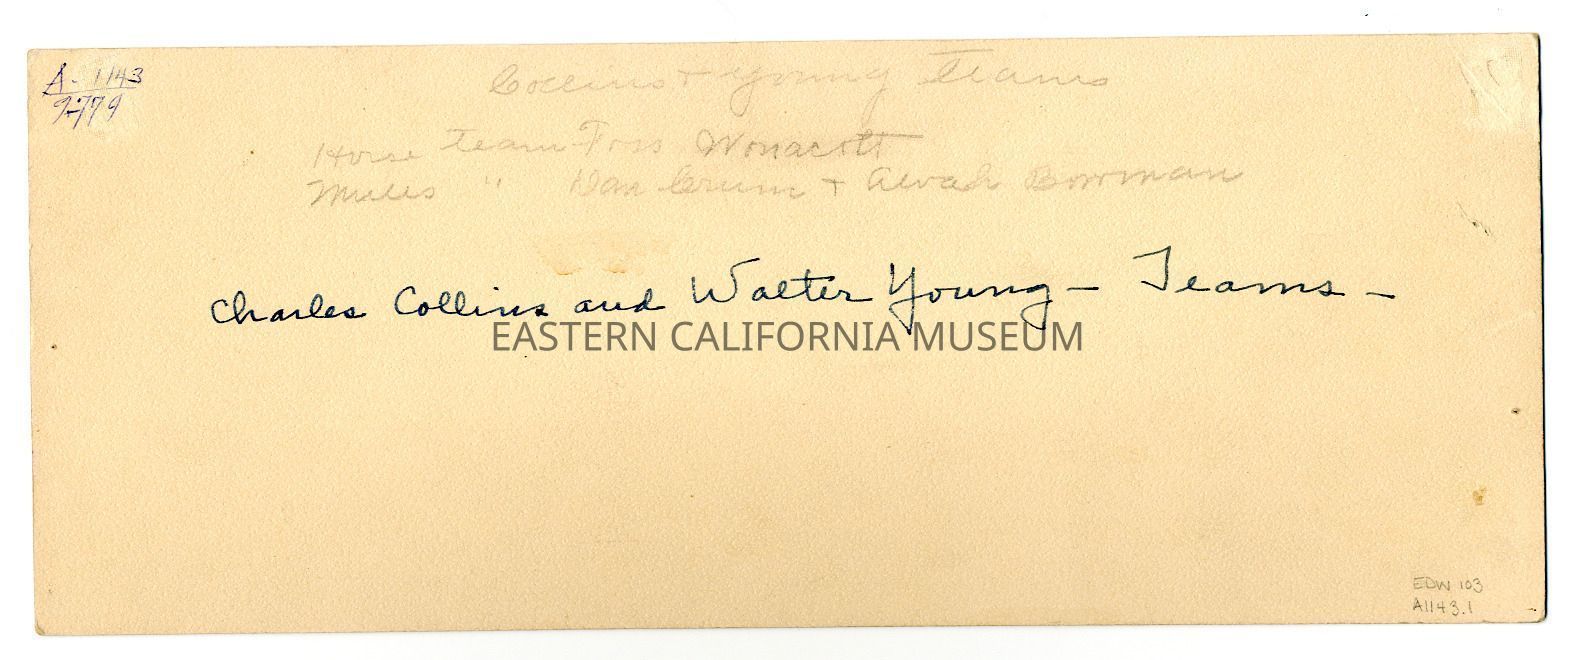 A-1143
9779
Collins + Young Teams
Horse Team - Foss Wonacott
Mules " Dan Crum + Alvah Bowman
Charles Collins and Walter Young - Teams -
EASTERN CALIFORNIA MUSEUM
EDW 103
A1143.1